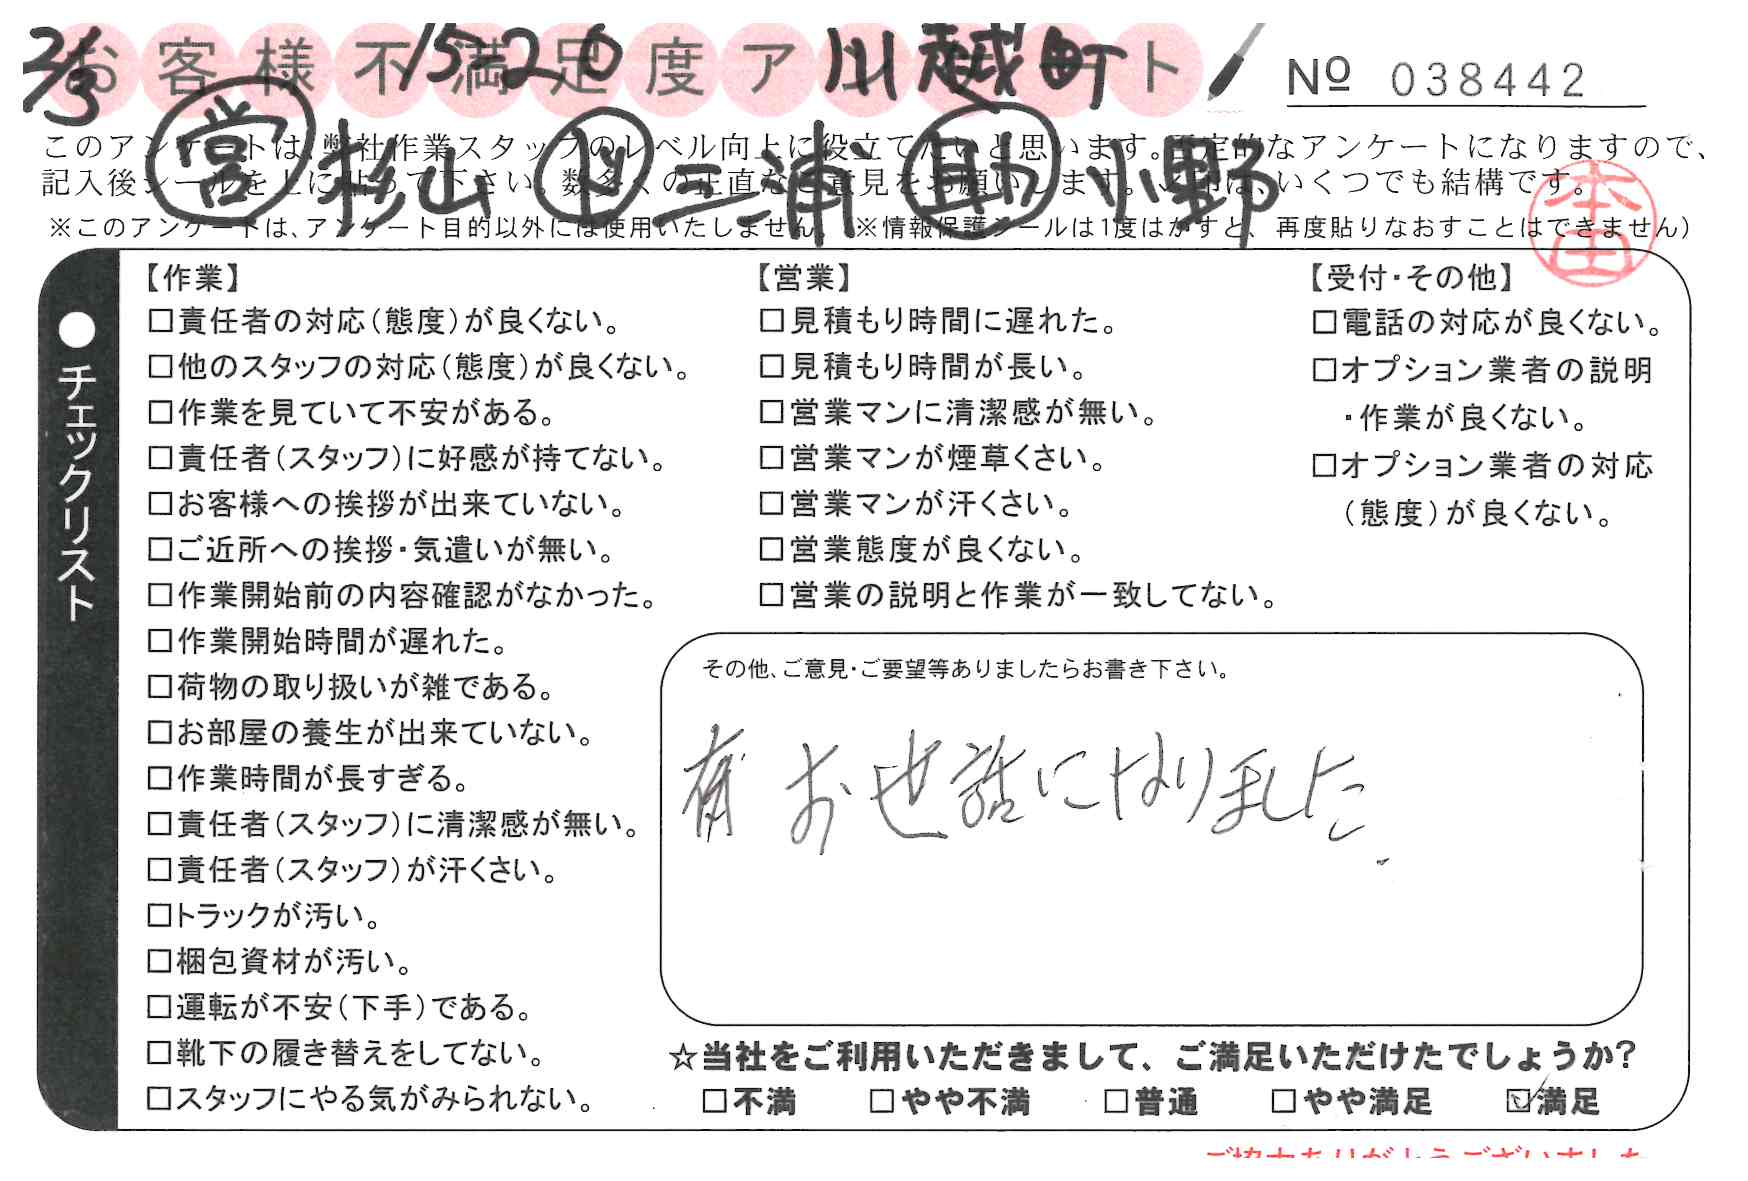 お客様不満足度アンケート
No 038442
2/3 1520 川越町
営 杉山 ド 三浦 助 小野
このアンケートは、弊社作業スタッフのレベル向上に役立てたいと思います。否定的なアンケートになりますので、
記入後シールを上に貼って下さい。数多くの正直なご意見をお願いします。✓印は、いくつでも結構です。
※このアンケートは、アンケート目的以外には使用いたしません。(※情報保護シールは1度はがすと、再度貼りなおすことはできません)
本田
●チェックリスト
【作業】
□責任者の対応(態度)が良くない。
□他のスタッフの対応(態度)が良くない。
□作業を見ていて不安がある。
□責任者(スタッフ)に好感が持てない。
□お客様への挨拶が出来ていない。
□ご近所への挨拶・気遣いが無い。
□作業開始前の内容確認がなかった。
□作業開始時間が遅れた。
□荷物の取り扱いが雑である。
□お部屋の養生が出来ていない。
□作業時間が長すぎる。
□責任者(スタッフ)に清潔感が無い。
□責任者(スタッフ)が汗くさい。
□トラックが汚い。
□梱包資材が汚い。
□運転が不安(下手)である。
□靴下の履き替えをしてない。
□スタッフにやる気がみられない。
【営業】
□見積もり時間に遅れた。
□見積もり時間が長い。
□営業マンに清潔感が無い。
□営業マンが煙草くさい。
□営業マンが汗くさい。
□営業態度が良くない。
□営業の説明と作業が一致してない。
【受付・その他】
□電話の対応が良くない。
□オプション業者の説明
・作業が良くない。
□オプション業者の対応
(態度)が良くない。
その他、ご意見・ご要望等ありましたらお書き下さい。
お世話になりました。
☆当社をご利用いただきまして、ご満足いただけたでしょうか?
□不満 □やや不満 □普通 □やや満足 ☑満足
ご協力ありがとうございました